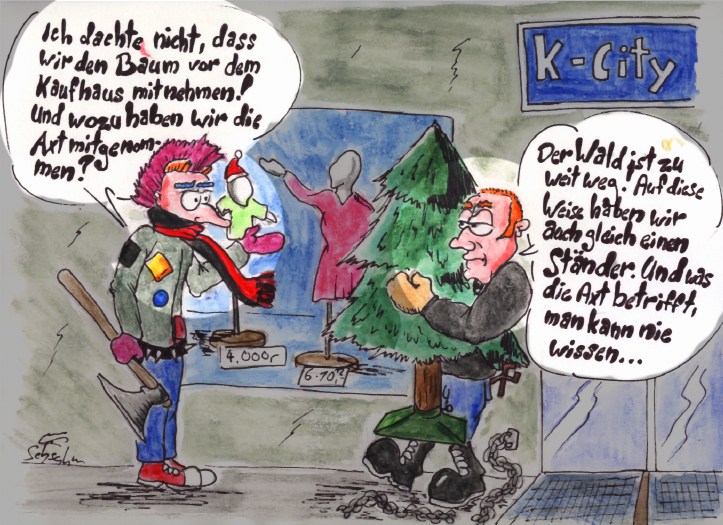 Ich dachte nicht, dass
wir den Baum vor dem
Kaufhaus mitnehmen!
Und wozu haben wir die
Axt mitgenom-
men?
K-City
Der Wald ist zu
weit weg! Auf diese
Weise haben wir
auch gleich einen
Ständer. Und was
die Axt betrifft,
man kann nie
wissen...
4.000,-